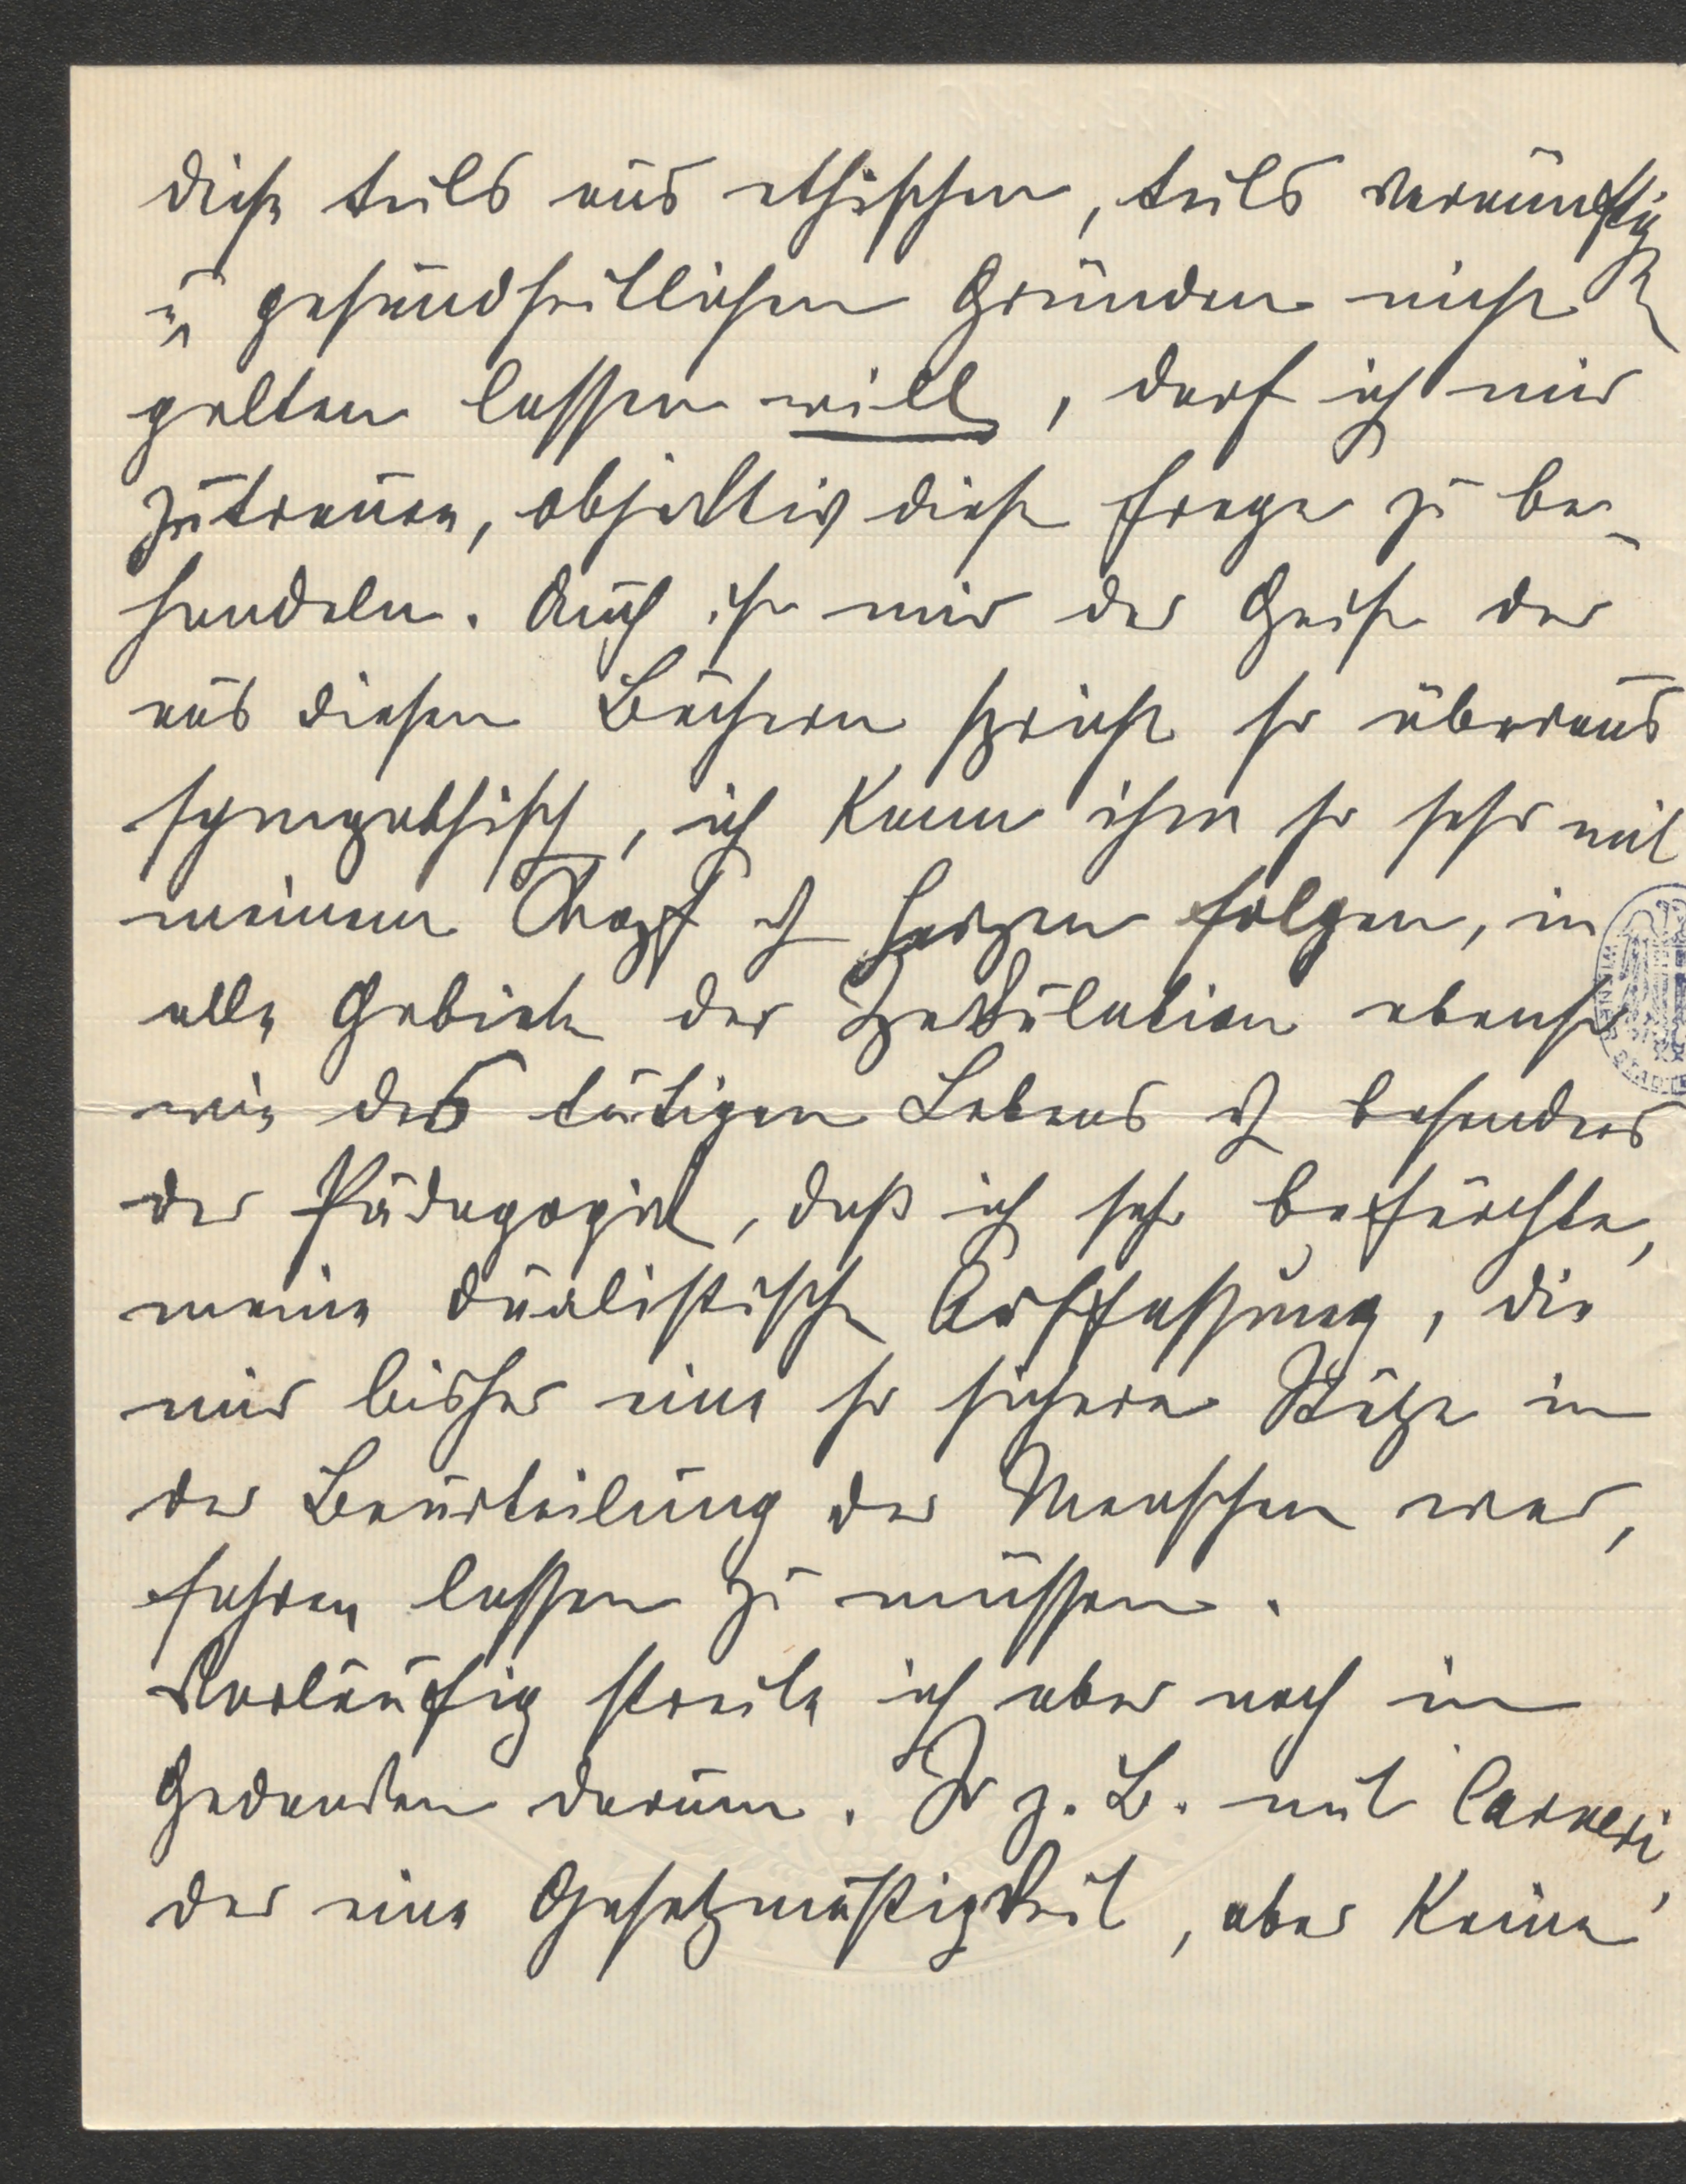 diese teils aus ethischen, teils vernünftig
u gesundheitlichen Gründen nicht
gelten lassen will, darf ich mir
zutrauen, objektiv diese Frage zu be-
handeln. Auch ist mir der Geist der
aus diesen Büchern spricht so überaus
sympathisch, ich kann ihm so sehr mit
meinem Kopf u Herzen folgen, in
alle Gebiete der Spekulation ebenso
wie des tätigen Lebens u besonders
der Pädagogik, daß ich sehr befürchte,
meine dualistische Auffassung, die
mir bisher eine so sichere Stütze in
der Beurteilung der Menschen war,
fahren lassen zu müssen.
Vorläufig streite ich aber noch in
Gedanken darum. So z. B. mit Carneri,
der eine Gesetzmäßigkeit, aber keine